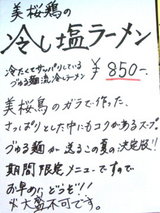 美桜鶏の
冷し塩ラーメン
冷たくてサッパリしている
づゅる麺流冷しラーメン
¥850-
美桜鶏のガラで作った、
さっぱりとした中にもコクがあるスープ。
づゅる麺が送るこの夏の決定版!!
期間限定メニューですので
お早めにどうぞ!!
※大盛不可です。